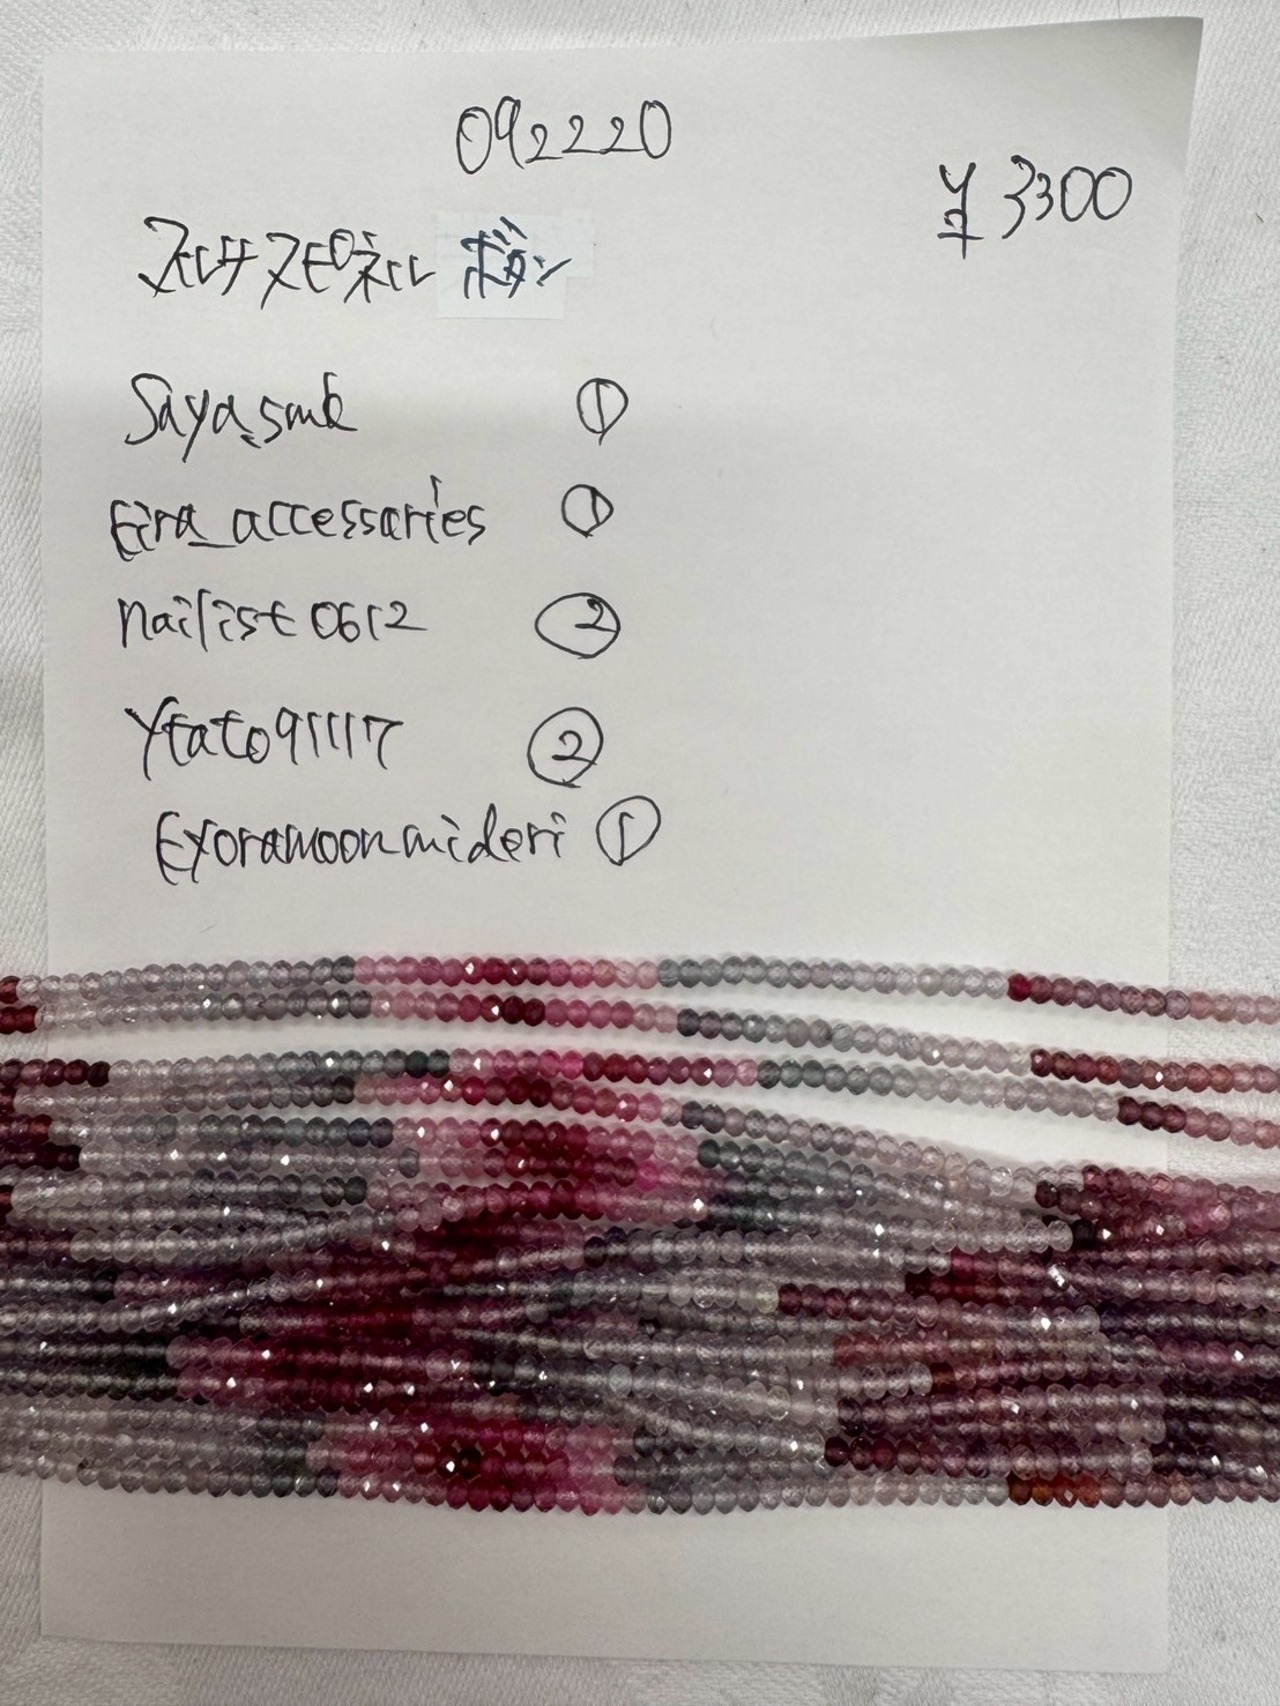 092220
¥3300
スピネル ボタン
Saya.smk
Eira_accessaries ①
nailist0612 ②
Ytato91117 ②
Exoramoonmideri ①